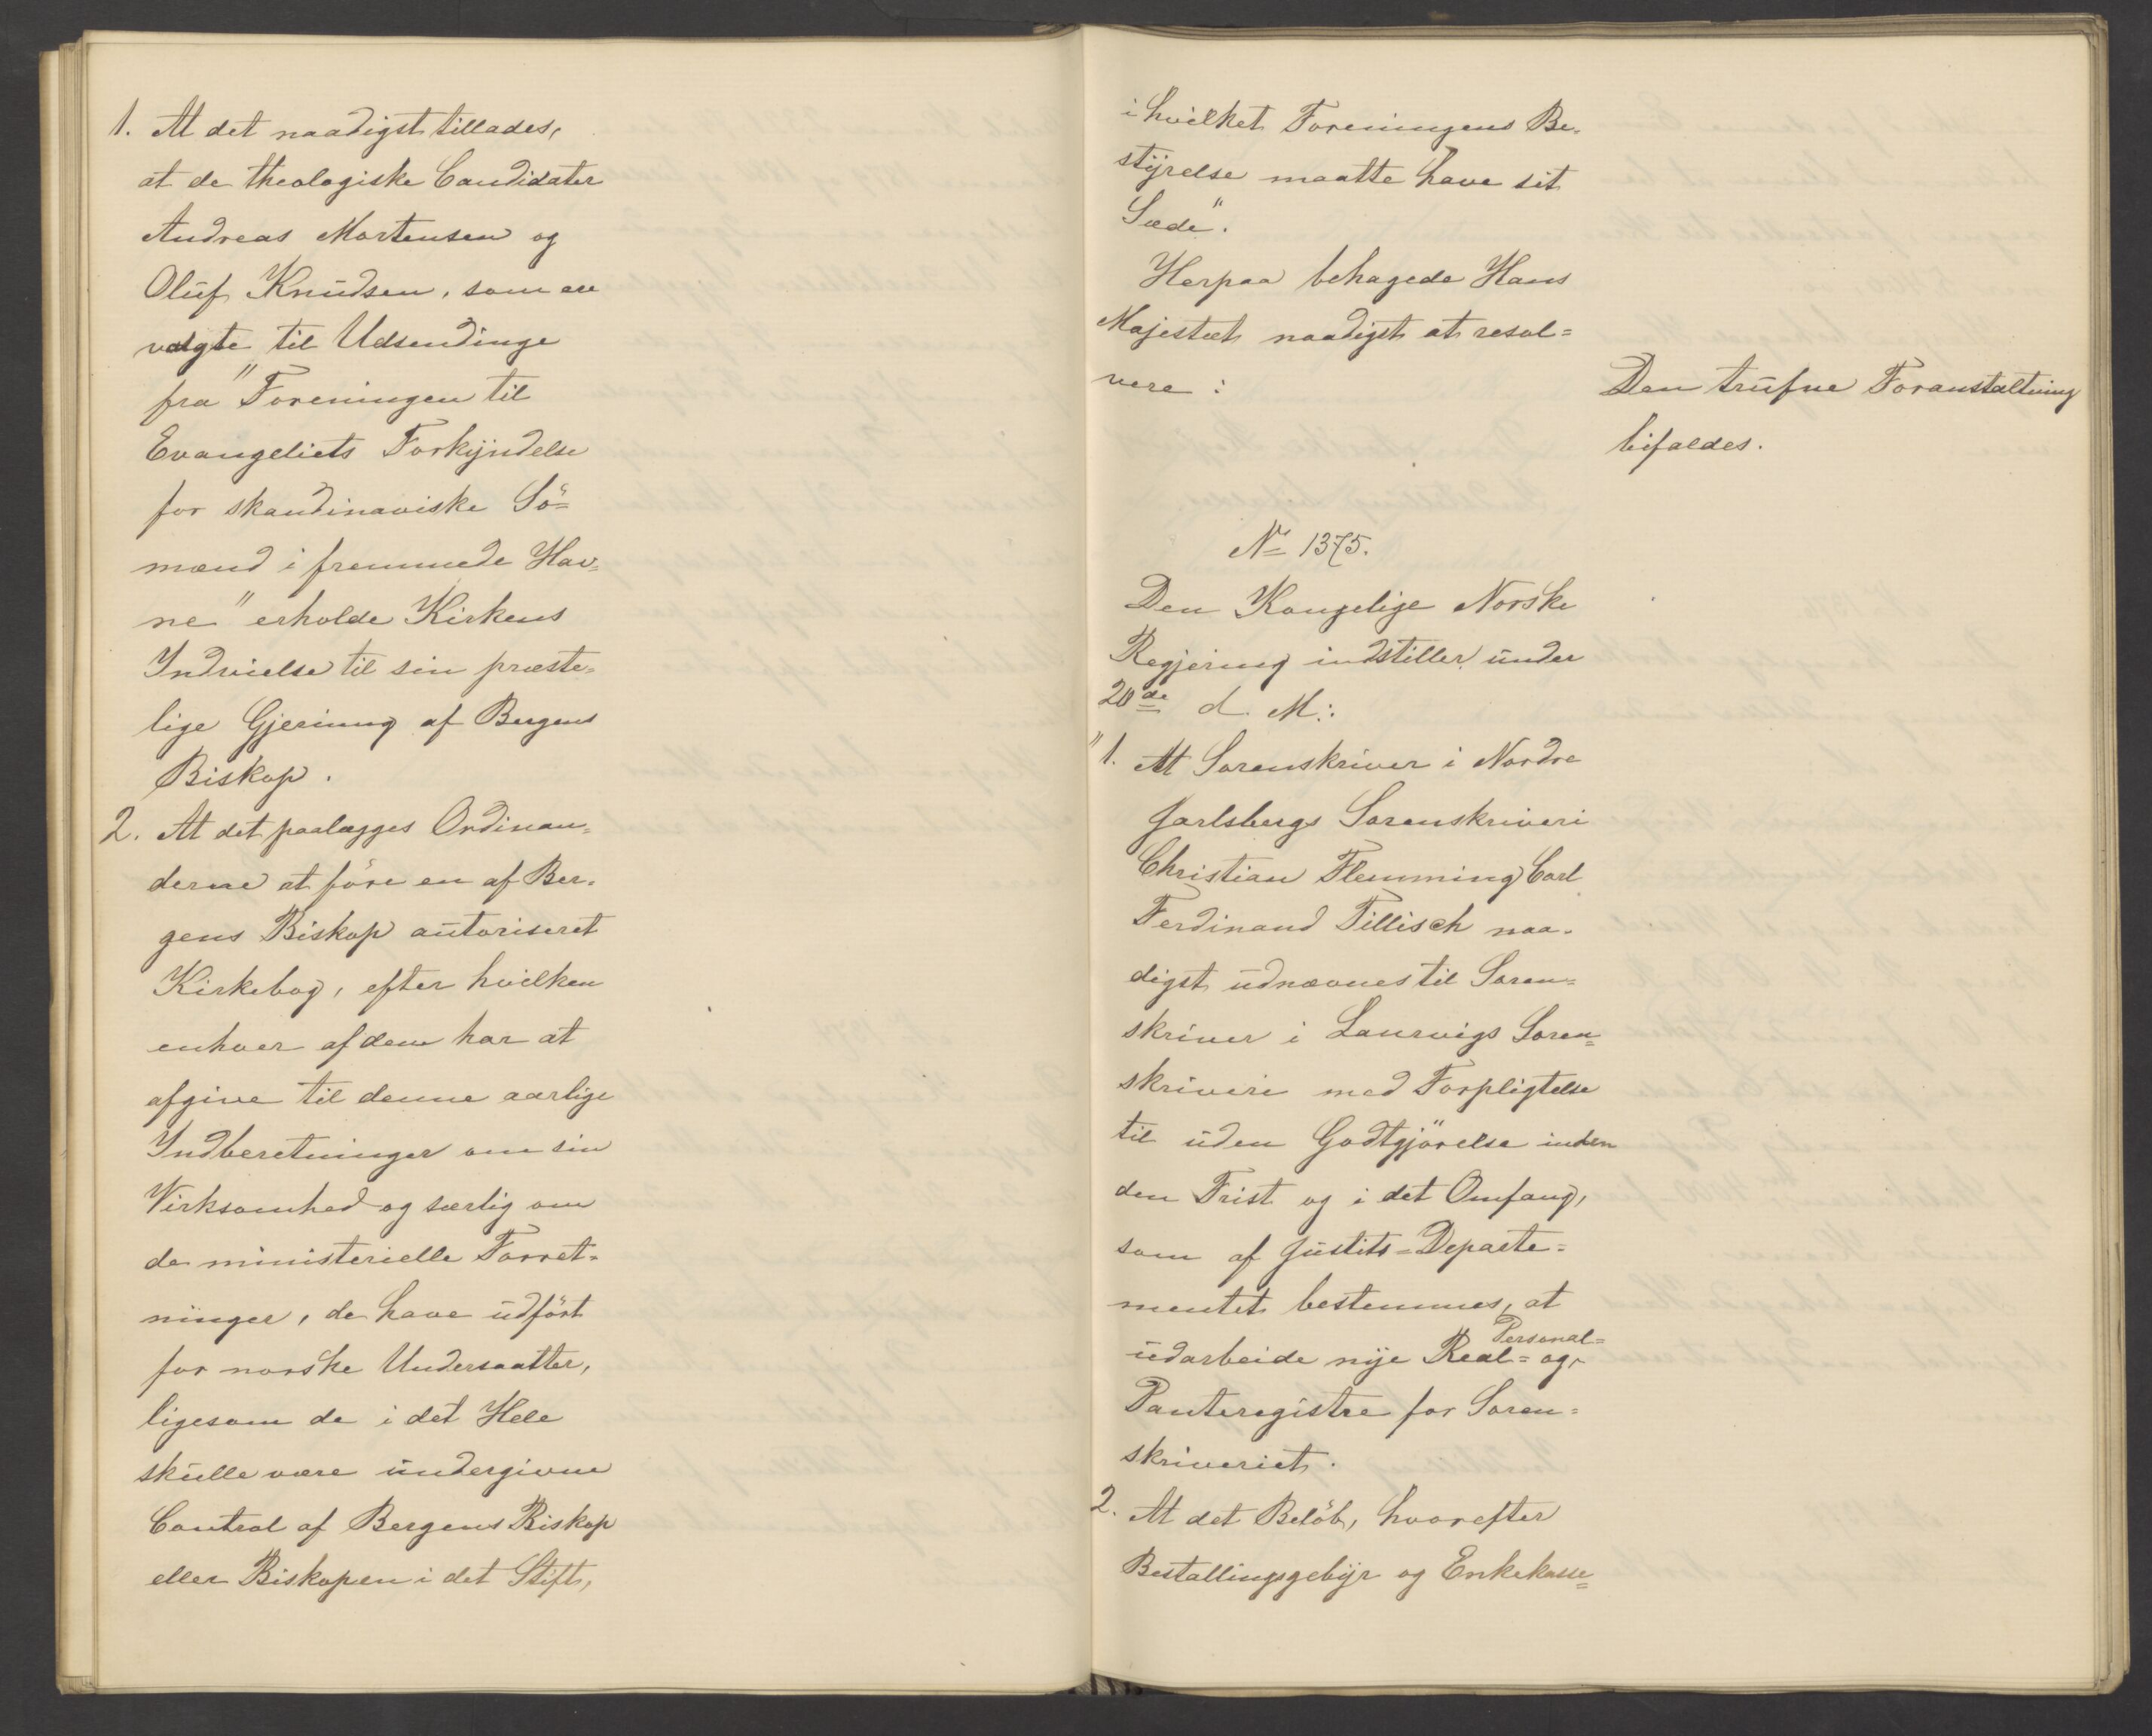 1. At det naadigst tillades,
at de theologiske Candidater
Andreas Mortensen og
Oluf Knudsen, som ere
valgte til Udsendinge
fra "Foreningen til
Evangeliets Forkyndelse
for skandinaviske Sö=
mænd i fremmede Hav=
ne" erholde Kirkens
Indvielse til sin præste=
lige Gjerning af Bergens
Biskop.
2. At det paalægges Ordinan=
derne at före en af Ber=
gens Biskop autoriseret
Kirkebog, efter hvilken
enhver af dem har at
afgive til denne aarlige
Indberetninger om sin
Virksomhed og særlig om
de ministerielle Forret=
ninger, de have udfört
for norske Undersaatter,
ligesom de i det Hele
skulle være undergivne
Control af Bergens Biskop
eller Biskopen i det Stift,
i hvilket Foreningens Be=
styrelse maatte have sit
Sæde".
Herpaa behagede Hans
Majestæt naadigst at resol=
vere :
Den trufne Foranstaltning
bifaldes.
No 1375.
Den Kongelige Norske
Regjering indstiller under
20de d. M.:
"1. At Sorenskriver i Nordre
Jarlsbergs Sorenskriveri
Christian Flemming Carl
Ferdinand Tillisch naa=
digst udnævnes til Soren=
skriver i Laurvigs Soren=
skriveri med Forpligtelse
til uden Godtgjörelse inden
den Frist og i det Omfang,
som af Justits=Departe=
mentet bestemmes, at
udarbeide nye Real= og Personal=
Panteregistre for Soren=
skriveriet.
2. At det Belöb, hvorefter
Bestallingsgebyr og Enkekasse=